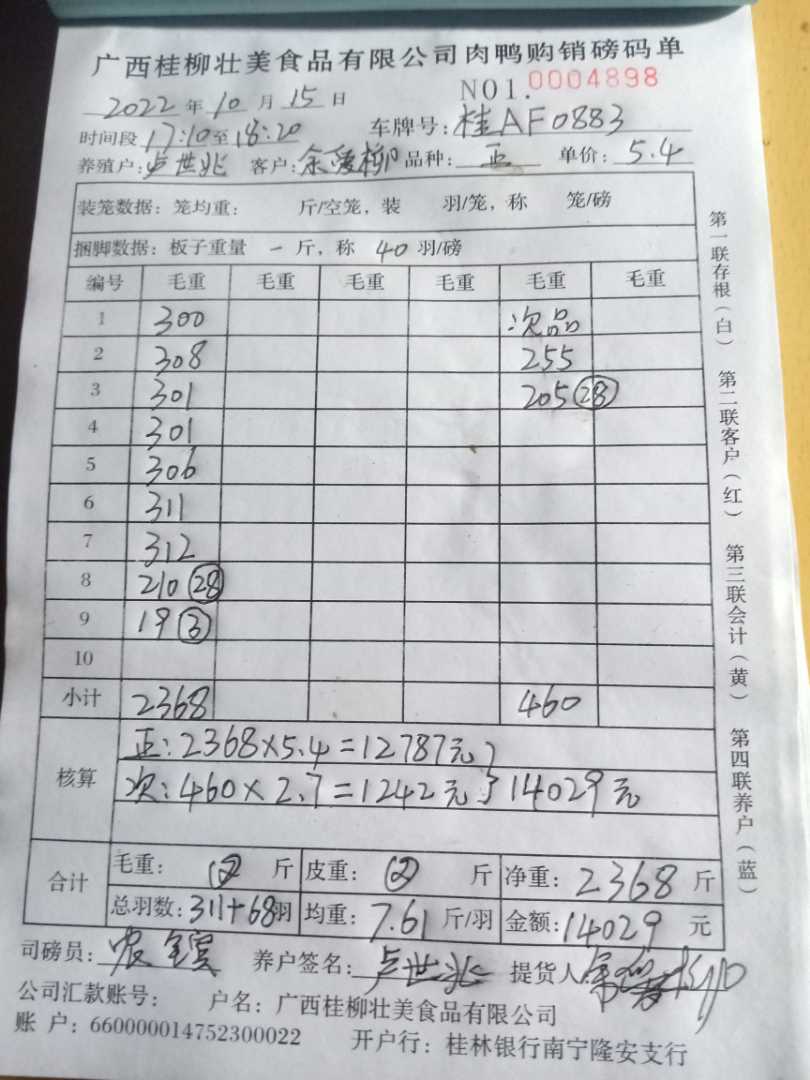 广西桂柳壮美食品有限公司肉鸭购销磅码单
NO1. 0004898
2022 年 10 月 15 日
时间段 17:10至18:20 车牌号: 桂AF0883
养殖户: 卢世兆 客户: 余爱柳 品种: 正 单价: 5.4
装笼数据: 笼均重: 斤/空笼, 装 羽/笼, 称 笼/磅
捆脚数据: 板子重量 一 斤, 称 40 羽/磅
编号 毛重 毛重 毛重 毛重 毛重 毛重
1 300 次品
2 308 255
3 301 205 28
4 301
5 306
6 311
7 312
8 210 28
9 19 3
10
小计 2368 460
核算
正: 2368×5.4=12787元
次: 460×2.7=1242元 14029元
合计
毛重: 斤 皮重: 斤 净重: 2368 斤
总羽数: 311+68羽 均重: 7.61 斤/羽 金额: 14029 元
司磅员: 养户签名: 卢世兆 提货人
公司汇款账号: 户名: 广西桂柳壮美食品有限公司
账 户: 660000014752300022 开户行: 桂林银行南宁隆安支行
第一联存根(白) 第二联客户(红) 第三联会计(黄) 第四联养户(蓝)